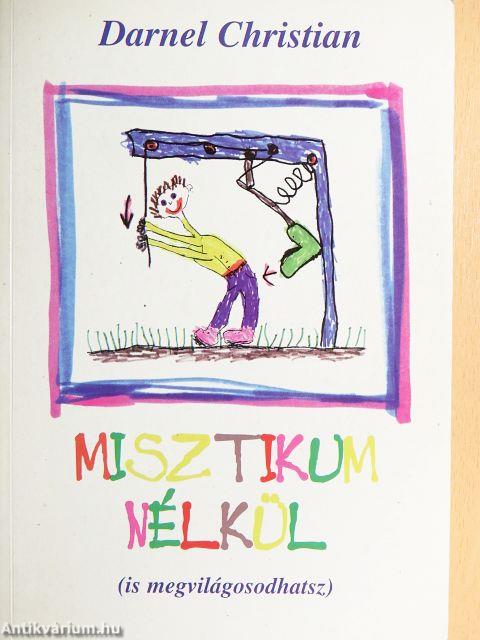 Darnel Christian
MISZTIKUM
NÉLKÜL
(is megvilágosodhatsz)
Antikvárium.hu